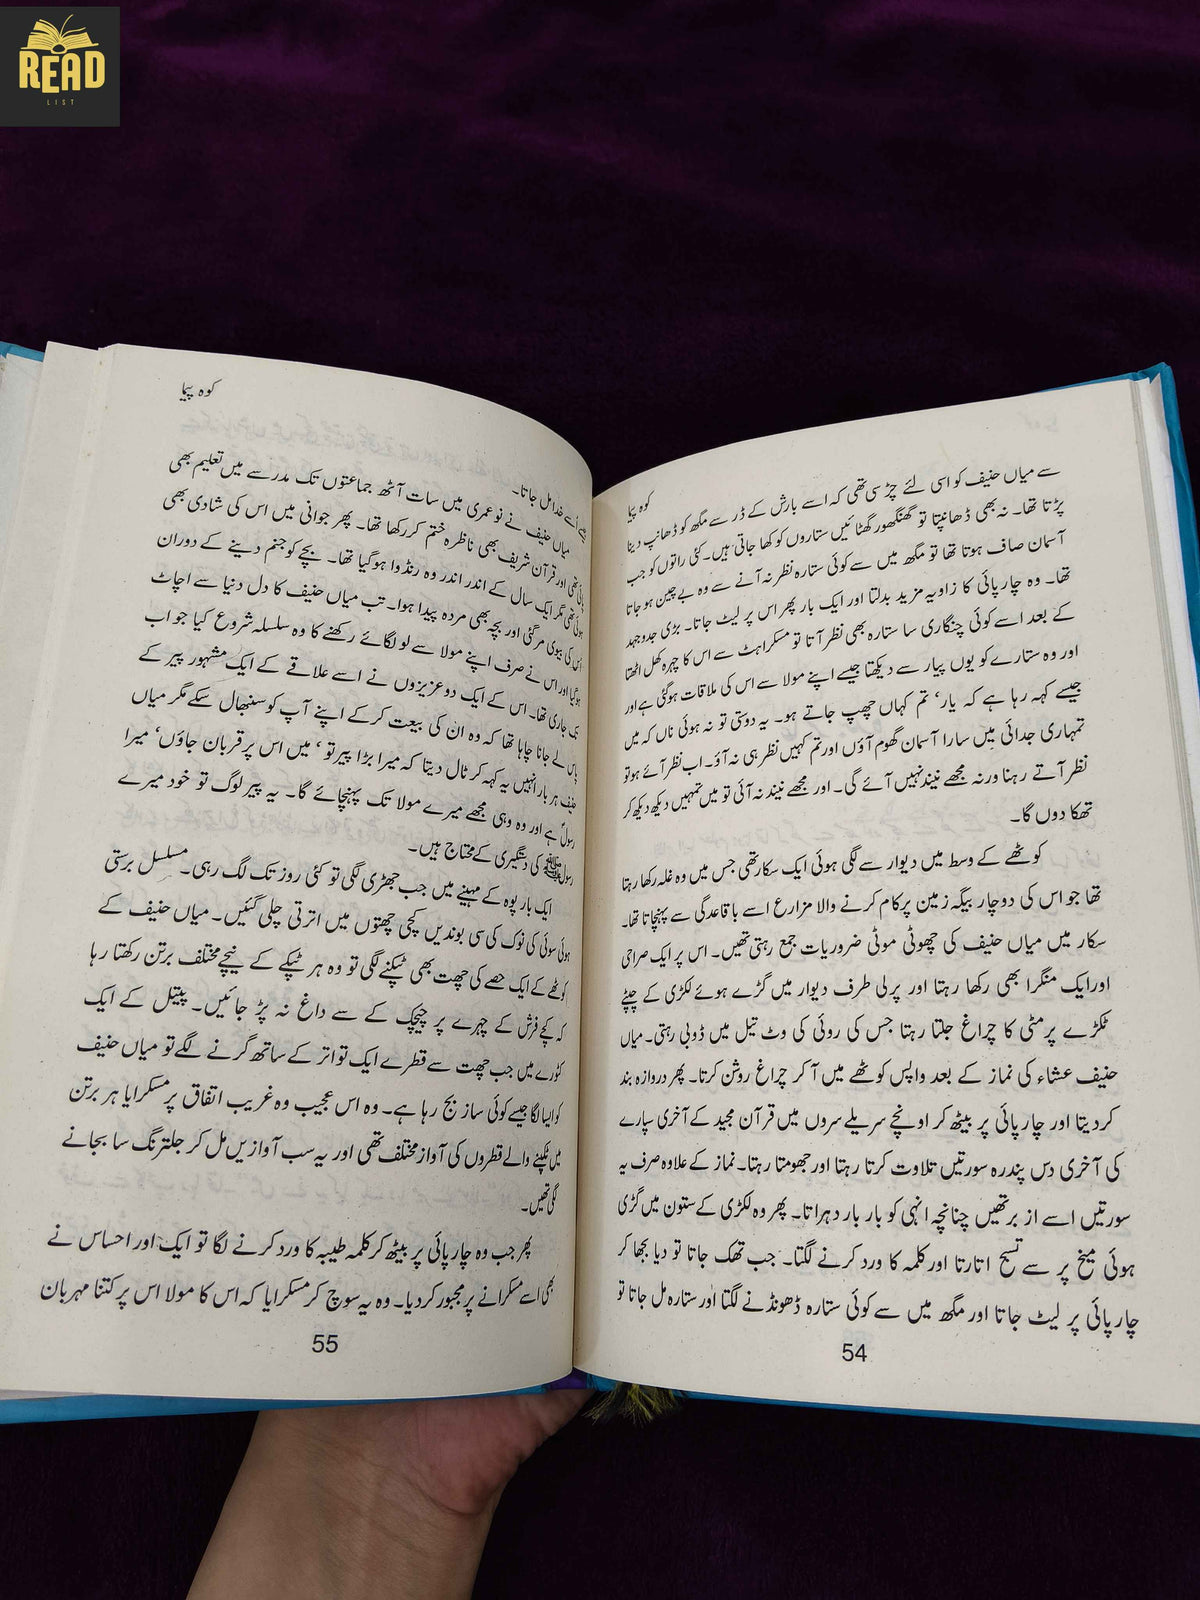 READ
LIST
کوہ پیما
سے میاں حنیف کو اسی لئے چڑ سی تھی کہ اسے بارش کے ڈر سے مگھ کو ڈھانپ دینا
پڑتا تھا۔ نہ بھی ڈھانپتا تو گھنگھور گھٹائیں ستاروں کو کھا جاتی ہیں۔ کئی راتوں کو جب
آسمان صاف ہوتا تھا تو مگھ میں سے کوئی ستارہ نظر نہ آنے سے وہ بے چین ہو جاتا
تھا۔ وہ چارپائی کا زاویہ مزید بدلتا اور ایک بار پھر اس پر لیٹ جاتا۔ بڑی جدوجہد
کے بعد اسے کوئی چنگاری سا ستارہ بھی نظر آتا تو مسکراہٹ سے اس کا چہرہ کھل اٹھتا
اور وہ ستارے کو یوں پیار سے دیکھتا جیسے اپنے مولا سے اس کی ملاقات ہوگئی ہے اور
جیسے کہہ رہا ہے کہ یار، تم کہاں چھپ جاتے ہو۔ یہ دوستی تو نہ ہوئی ناں کہ میں
تمہاری جدائی میں سارا آسمان گھوم آؤں اور تم کہیں نظر ہی نہ آؤ۔ اب نظر آئے ہو تو
نظر آتے رہنا ورنہ مجھے نیند نہیں آئے گی۔ اور مجھے نیند نہ آئی تو میں تمہیں دیکھ دیکھ کر
تھکا دوں گا۔
کوٹھے کے وسط میں دیوار سے لگی ہوئی ایک سکار تھی جس میں وہ غلہ رکھا رہتا
تھا جو اس کی دو چار بیگہ زمین پر کام کرنے والا مزارع اسے باقاعدگی سے پہنچاتا تھا۔
سکار میں میاں حنیف کی چھوٹی موٹی ضروریات جمع رہتی تھیں۔ اس پر ایک صراحی
اور ایک منگرا بھی رکھا رہتا اور پرلی طرف دیوار میں گڑے ہوئے لکڑی کے چپٹے
ٹکڑے پر مٹی کا چراغ جلتا رہتا جس کی روئی کی وٹ تیل میں ڈوبی رہتی۔ میاں
حنیف عشاء کی نماز کے بعد واپس کوٹھے میں آ کر چراغ روشن کرتا۔ پھر دروازہ بند
کر دیتا اور چارپائی پر بیٹھ کر اونچے سریلے سروں میں قرآن مجید کے آخری سپارے
کی آخری دس پندرہ سورتیں تلاوت کرتا رہتا اور جھومتا رہتا۔ نماز کے علاوہ صرف یہ
سورتیں اسے ازبر تھیں چنانچہ انہی کو بار بار دہراتا۔ پھر وہ لکڑی کے ستون میں گڑی
ہوئی میخ پر سے تسبح اتارتا اور کلمہ کا ورد کرنے لگتا۔ جب تھک جاتا تو دیا بجھا کر
چارپائی پر لیٹ جاتا اور مگھ میں سے کوئی ستارہ ڈھونڈنے لگتا اور ستارہ مل جاتا تو
54
کوہ پیما
جیسے اُسے خدا مل جاتا۔
میاں حنیف نے نوعمری میں سات آٹھ جماعتوں تک مدرسے میں تعلیم بھی
پائی تھی اور قرآن شریف بھی ناظرہ ختم کر رکھا تھا۔ پھر جوانی میں اس کی شادی بھی
ہوئی تھی مگر ایک سال کے اندر اندر وہ رنڈوا ہوگیا تھا۔ بچے کو جنم دینے کے دوران
اس کی بیوی مر گئی اور بچہ بھی مردہ پیدا ہوا۔ تب میاں حنیف کا دل دنیا سے اچاٹ
ہوگیا اور اس نے صرف اپنے مولا سے لو لگائے رکھنے کا وہ سلسلہ شروع کیا جو اب
تک جاری تھا۔ اس کے ایک دو عزیزوں نے اسے علاقے کے ایک مشہور پیر کے
پاس لے جانا چاہا تھا کہ وہ ان کی بیعت کر کے اپنے آپ کو سنبھال سکے مگر میاں
حنیف ہر بار انہیں یہ کہہ کر ٹال دیتا کہ میرا بڑا پیر تو ، میں اس پر قربان جاؤں، میرا
رسولؐ ہے اور وہ وہی مجھے میرے مولا تک پہنچائے گا۔ یہ پیر لوگ تو خود میرے
رسولﷺ کی دستگیری کے محتاج ہیں۔
ایک بار پوہ کے مہینے میں جب جھڑی لگی تو کئی روز تک لگ رہی۔ مسلسل برستی
ہوئی سوئی کی نوک کی سی بوندیں کچی چھتوں میں اترتی چلی گئیں۔ میاں حنیف کے
کوٹھے کے ایک حصے کی چھت بھی ٹپکنے لگی تو وہ ہر ٹپکے کے نیچے مختلف برتن رکھتا رہا
کہ کچے فرش کے چہرے پر چیچک کے سے داغ نہ پڑ جائیں۔ پیتل کے ایک
کٹورے میں جب چھت سے قطرے ایک تواتر کے ساتھ گرنے لگے تو میاں حنیف
کو ایسا لگا جیسے کوئی ساز بج رہا ہے۔ وہ اس عجیب وہ غریب اتفاق پر مسکرایا ہر برتن
میں ٹپکنے والے قطروں کی آواز مختلف تھی اور یہ سب آوازیں مل کر جلترنگ سا بجانے
لگی تھیں۔
پھر جب وہ چارپائی پر بیٹھ کر کلمہ طیبہ کا ورد کرنے لگا تو ایک اور احساس نے
بھی اسے مسکرانے پر مجبور کر دیا۔ وہ یہ سوچ کر مسکرایا کہ اس کا مولا اس پر کتنا مہربان
55